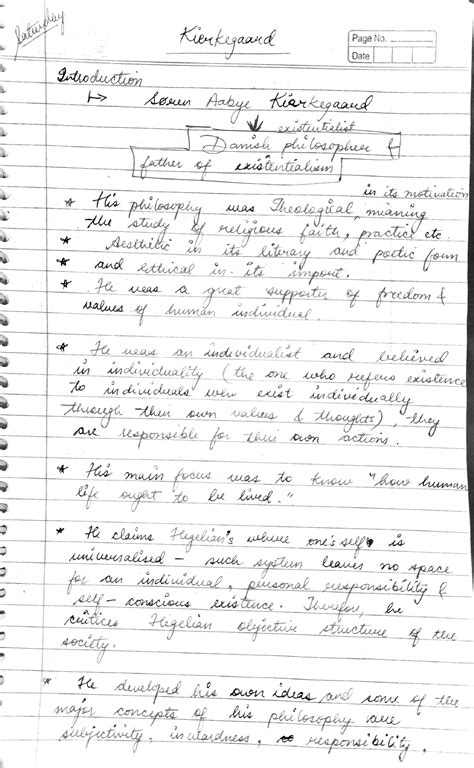 Saturday
Kierkegaard
Page No.
Date
Introduction
↦ Søren Aabye Kiarkegaard
existentialist
Danish philosopher &
father of existentialism
in its motivation
* His philosophy was Theological, meaning
the study of religious faith, practice etc.
* Aesthetic in its literary and poetic form
* and ethical in its import.
* He was a great supporter of freedom &
values of human individual.
* He was an individualist and believed
in individuality (the one who refers existence
to individuals who exist individually
through their own values & thoughts), they
are responsible for their own actions.
* His main focus was to know "how human
life ought to be lived."
* He claims Hegelian's where one's self is
universalised - such system leaves no space
for an individual, personal responsibility &
self-conscious existence. Therefore, he
critices Hegelian objective structure of the
society.
* He developed his own ideas and some of the
major concepts of his philosophy are
subjectivity, inwardness, responsibility,